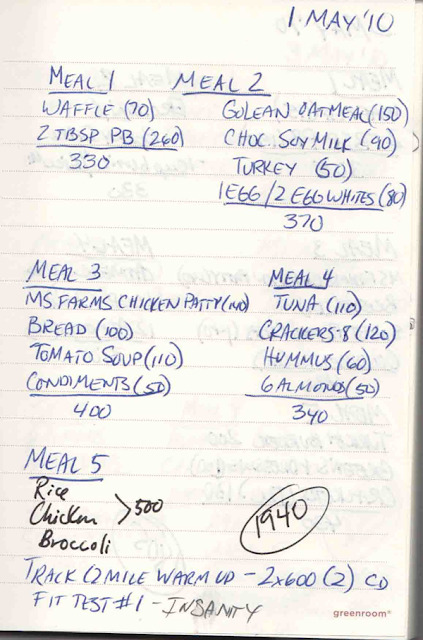 1 MAY '10
MEAL 1
WAFFLE (70)
2 TBSP PB (260)
330
MEAL 2
GOLEAN OATMEAL (150)
CHOC. SOY MILK (90)
TURKEY (50)
1 EGG / 2 EGG WHITES (80)
370
MEAL 3
MS FARMS CHICKEN PATTY (140)
BREAD (100)
TOMATO SOUP (110)
CONDIMENTS (50)
400
MEAL 4
TUNA (110)
CRACKERS-8 (120)
HUMMUS (60)
6 ALMONDS (50)
340
MEAL 5
Rice
Chicken >500
Broccoli
1940
TRACK (2 MILE WARM UP - 2x600 (2) CD
FIT TEST #1 - INSANITY
greenroom